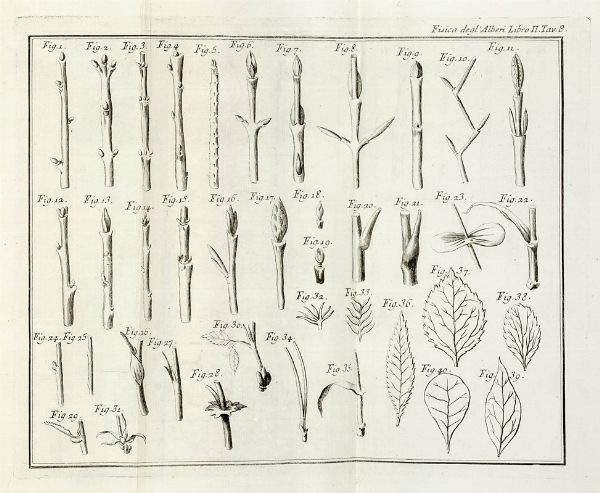 Fisica degl'Alberi Libro II. Tav. 8.
Fig. 1. Fig. 2. Fig. 3. Fig. 4. Fig. 5. Fig. 6. Fig. 7. Fig. 8. Fig. 9. Fig. 10. Fig. 11.
Fig. 12. Fig. 13. Fig. 14. Fig. 15. Fig. 16. Fig. 17. Fig. 18. Fig. 20. Fig. 21. Fig. 23. Fig. 22.
Fig. 19.
Fig. 32. Fig. 33. Fig. 36. Fig. 37. Fig. 38.
Fig. 24. Fig. 25. Fig. 26. Fig. 27. Fig. 30. Fig. 34.
Fig. 28. Fig. 35. Fig. 40. Fig. 39.
Fig. 29. Fig. 31.